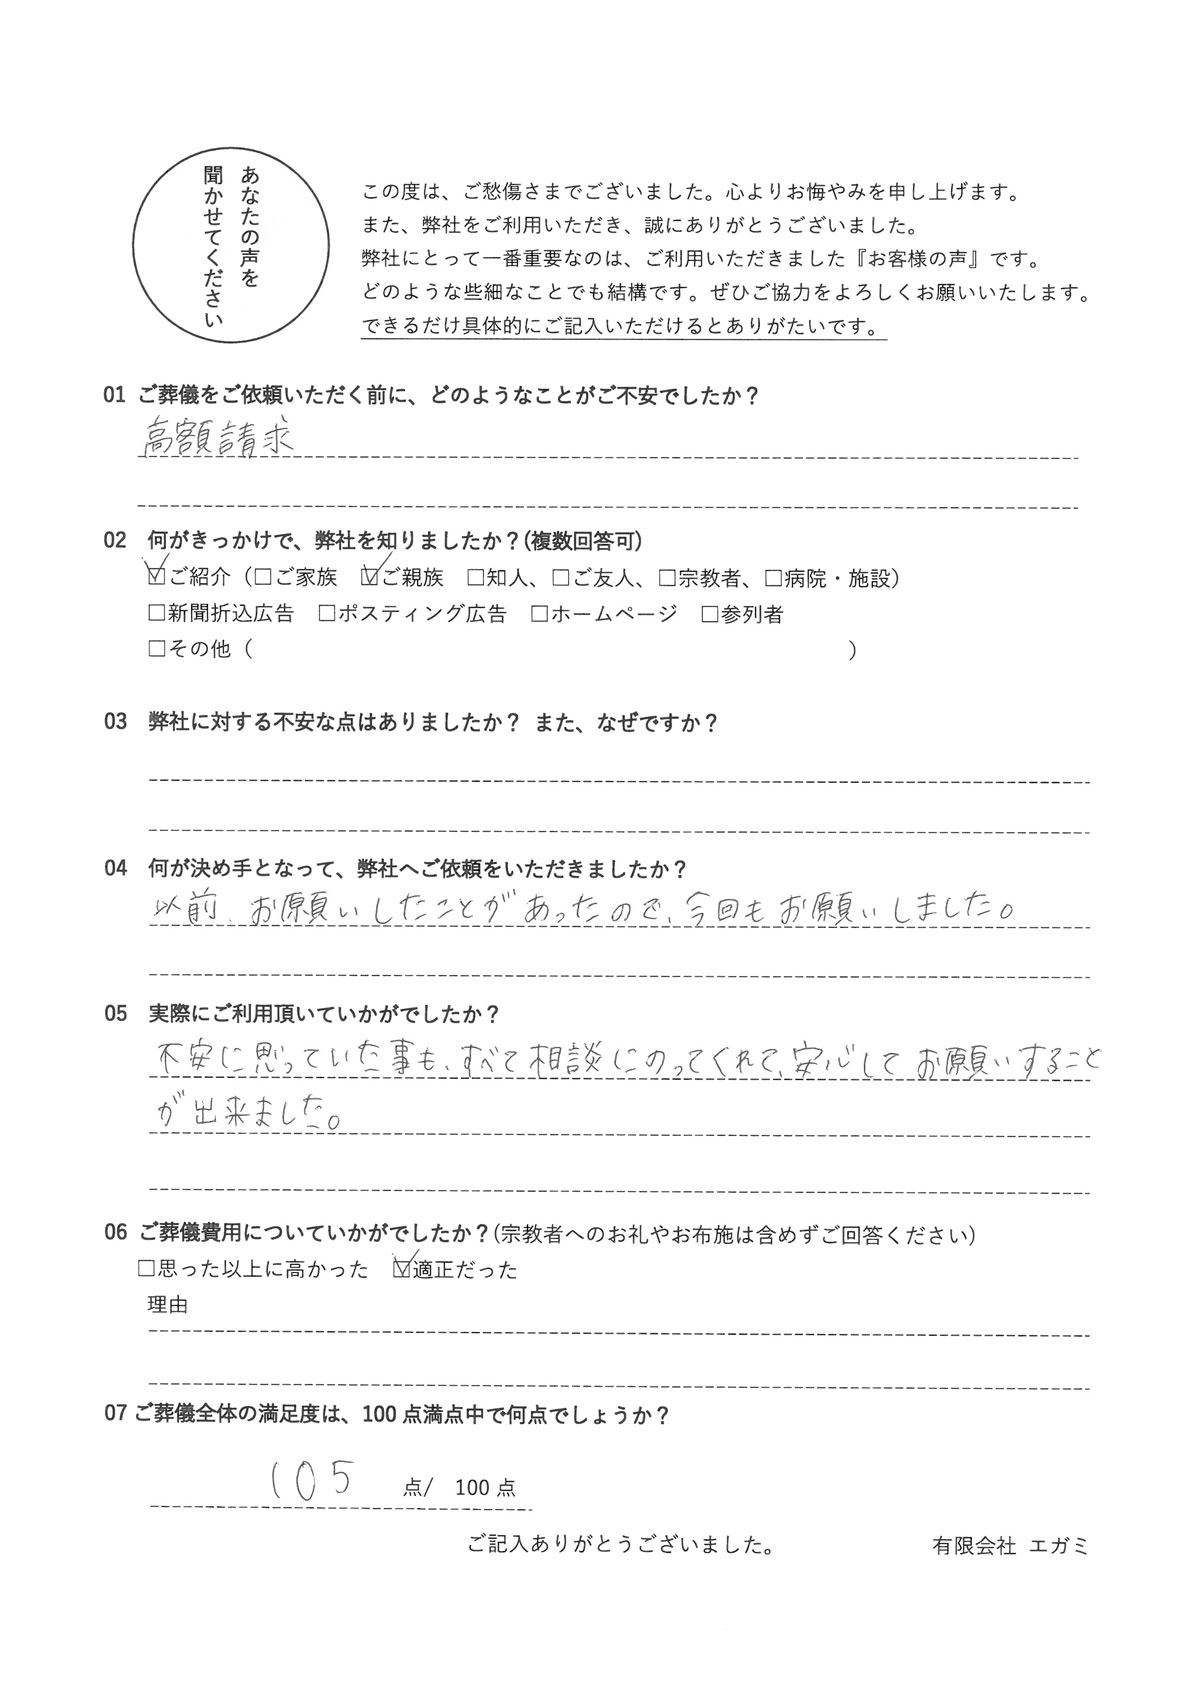 あなたの声を
聞かせてください
この度は、ご愁傷さまでございました。心よりお悔やみを申し上げます。
また、弊社をご利用いただき、誠にありがとうございました。
弊社にとって一番重要なのは、ご利用いただきました『お客様の声』です。
どのような些細なことでも結構です。ぜひご協力をよろしくお願いいたします。
できるだけ具体的にご記入いただけるとありがたいです。
01 ご葬儀をご依頼いただく前に、どのようなことがご不安でしたか？
高額請求
02 何がきっかけで、弊社を知りましたか？(複数回答可)
☑ご紹介（□ご家族 ☑ご親族 □知人、□ご友人、□宗教者、□病院・施設）
□新聞折込広告 □ポスティング広告 □ホームページ □参列者
□その他（ ）
03 弊社に対する不安な点はありましたか？ また、なぜですか？
04 何が決め手となって、弊社へご依頼をいただきましたか？
以前、お願いしたことがあったので、今回もお願いしました。
05 実際にご利用頂いていかがでしたか？
不安に思っていた事も、すべて相談にのってくれて、安心してお願いすること
が出来ました。
06 ご葬儀費用についていかがでしたか？(宗教者へのお礼やお布施は含めずご回答ください)
□思った以上に高かった ☑適正だった
理由
07 ご葬儀全体の満足度は、100 点満点中で何点でしょうか？
105 点/ 100 点
ご記入ありがとうございました。 有限会社 エガミ